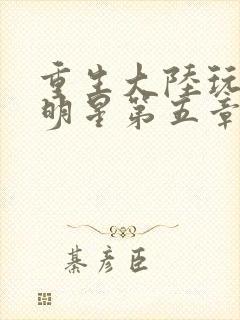 重生大陸玩
明星第五章
綦彦臣